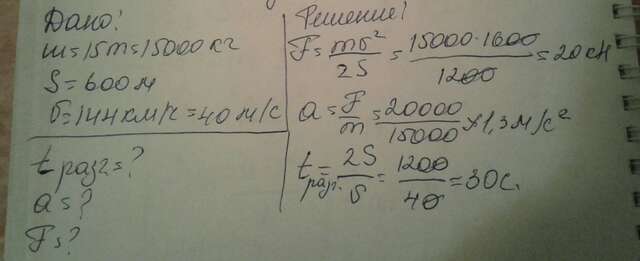 Дано!
m=15т=15000 кг
S=600 м
υ=144 км/ч=40 м/с
t разг=?
a=?
F=?
Решение!
F=mυ²/2S=15000·1600/1200=20 кН
a=F/m=20000/15000≈1,3 м/с²
t разг.=2S/υ=1200/40=30 с.